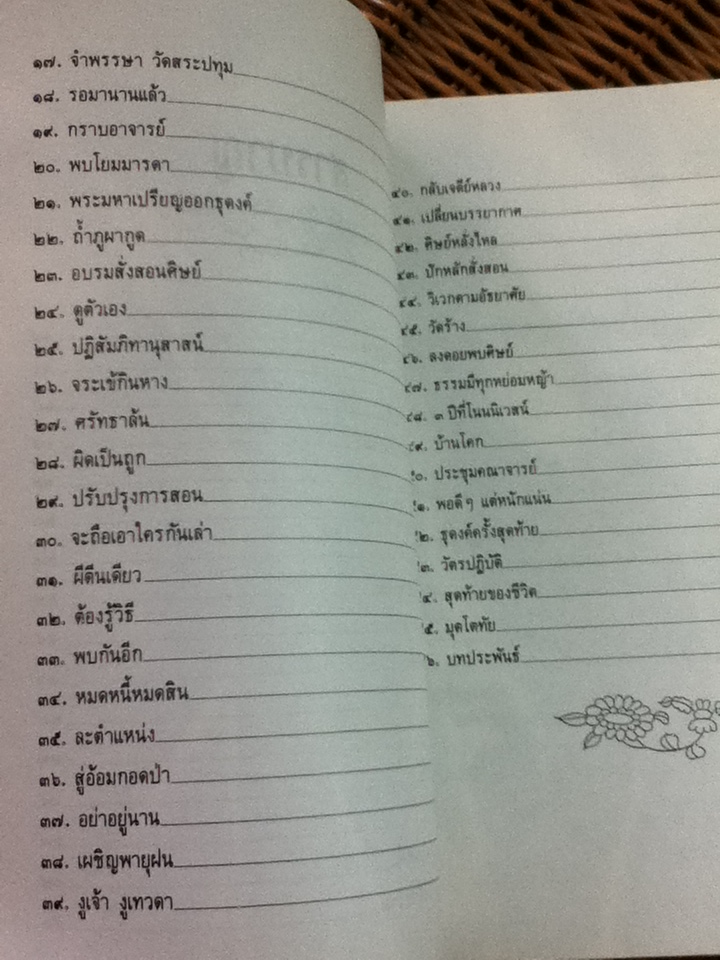 ๑๗. จำพรรษา วัดสระปทุม
๑๘. รอมานานแล้ว
๑๙. กราบอาจารย์
๒๐. พบโยมมารดา
๒๑. พระมหาเปรียญออกธุดงค์
๒๒. ถ้ำภูผากูด
๒๓. อบรมสั่งสอนศิษย์
๒๔. ดูตัวเอง
๒๕. ปฏิสัมภิทานุสาสน์
๒๖. จระเข้กินหาง
๒๗. ศรัทธาล้น
๒๘. ผิดเป็นถูก
๒๙. ปรับปรุงการสอน
๓๐. จะถือเอาใครกันเล่า
๓๑. ผีตีนเดียว
๓๒. ต้องรู้วิธี
๓๓. พบกันอีก
๓๔. หมดหนี้หมดสิน
๓๕. ละตำแหน่ง
๓๖. สู่อ้อมกอดป่า
๓๗. อย่าอยู่นาน
๓๘. เผชิญพายุฝน
๓๙. งูเจ้า งูเทวดา
๔๐. กลับเจดีย์หลวง
๔๑. เปลี่ยนบรรยากาศ
๔๒. ศิษย์หลั่งไหล
๔๓. ปักหลักสั่งสอน
๔๔. วิเวกตามอัธยาศัย
๔๕. วัดร้าง
๔๖. ลงดอยพบศิษย์
๔๗. ธรรมมีทุกหย่อมหญ้า
๔๘. ๓ ปีที่โนนนิเวสน์
๔๙. บ้านโคก
๐. ประชุมคณาจารย์
๑. พอดีๆ แต่หนักแน่น
๒. ธุดงค์ครั้งสุดท้าย
๓. วัตรปฏิบัติ
๔. สุดท้ายของชีวิต
๕. มุตโตทัย
๖. บทประพันธ์